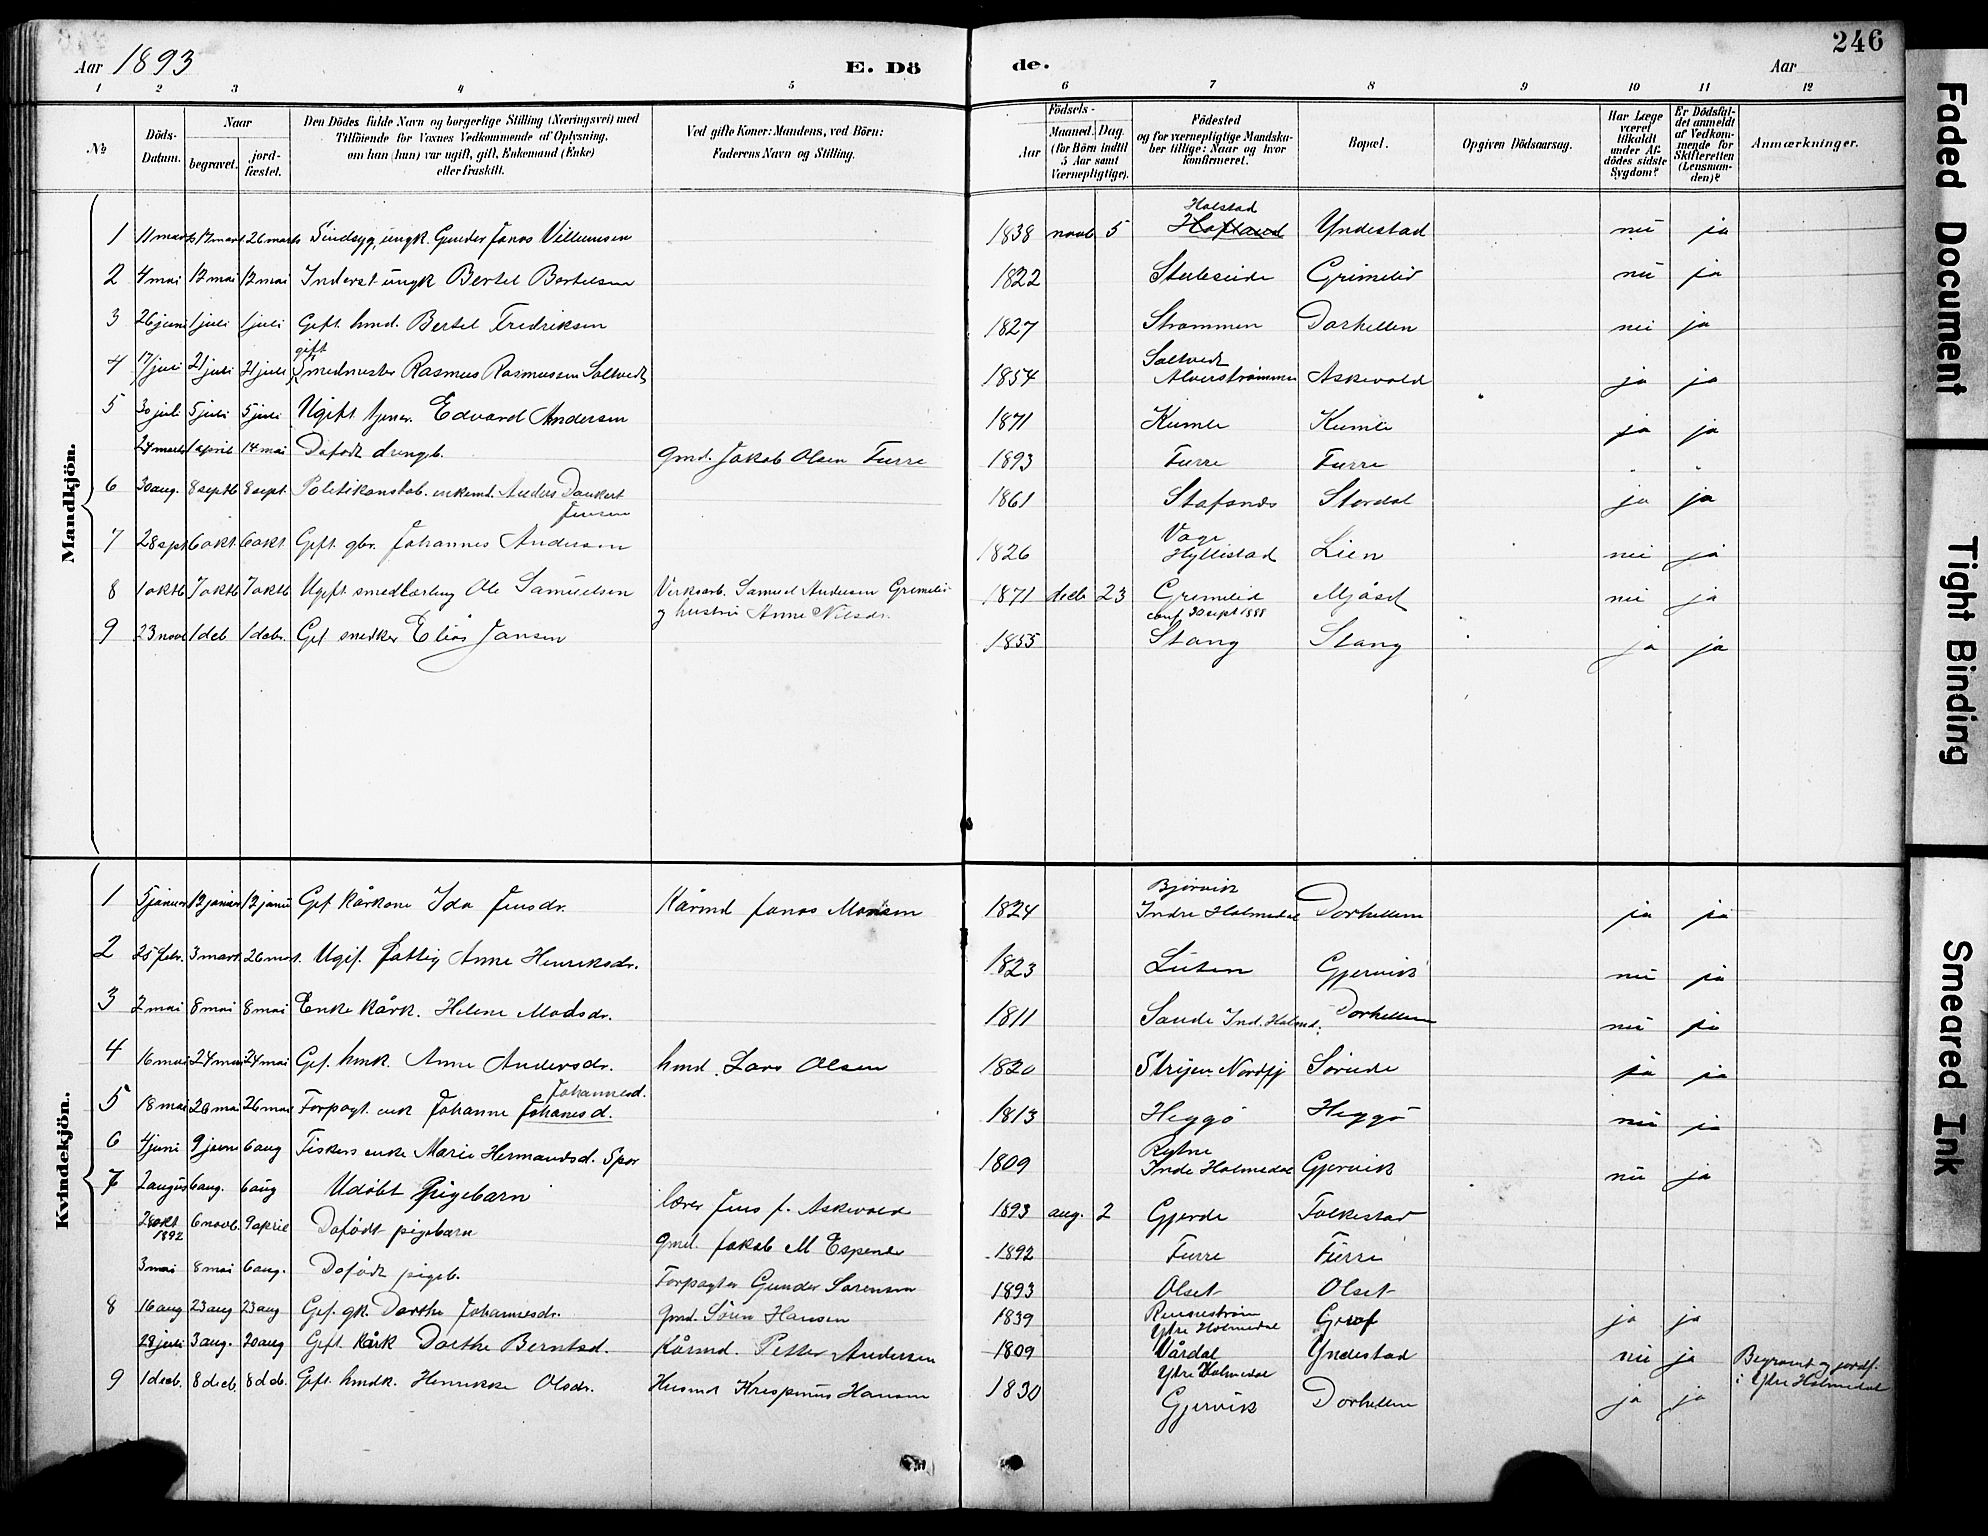 246
Aar 1893 E. Dö de. Aar
1 2 3 4 5 6 7 8 9 10 11 12
№ Döds-Datum. Naar begravet. jord-fæstet. Den Dödes fulde Navn og borgerlige Stilling (Næringsvei) med Tilföiende for Voxnes Vedkommende af Oplysning, om han (hun) var ugift, gift, Enkemand (Enke) eller fraskilt. Ved gifte Koner: Mandens, ved Börn: Faderens Navn og Stilling. Födsels- Aar Maaned. Dag. (for Börn indtil 5 Aar samt Værnepligtige). Födested og for værnepligtige Mandskaber tillige: Naar og hvor konfirmeret. Bopæl. Opgiven Dödsaarsag. Har Læge været tilkaldt under Afdödes sidste Sygdom? Er Dödsfaldet anmeldt af Vedkommende for Skifteretten (Lensmanden)? Anmærkninger.
Mandkjön.
Holstad
1 11 marts 17 marts 26 marts Sindsyg, ungk. Gunder Janos Villumsen 1838 novb 5 Yndestad nei ja
2 4 mai 12 mai 12 mai Inderst ungk Bertel Bertelsen 1822 Stubseide Grimelid nei ja
3 26 juni 1 juli 1 juli Gift. hmd. Bertel Fredriksen 1827 Strømmen Dorhellen nei ja
gift Saltvedt
4 17/juli 21 juli 21 juli Smedmester Rasmus Rasmussen Saltvedt 1854 Alverstrømmen Askevold ja ja
5 30 juli 5 juli 5 juli Ugift tjener Edvard Andersen 1871 Kumle Kumle ja ja
24 marts 1 april 14 mai Dødfødt drengb. Gmd. Jakob Olsen Furre 1893 Furre Furre
6 30 aug. 8 septb 8 sept. Politikonstab. enkemd. Anders Dankert Jensen 1861 Stafsnes Stordal ja ja
Vage
7 28 sept 6 okt. 6 okt Gift gbr. Johannes Andersen 1826 Hyllestad Lien nei ja
8 1 oktb 7 oktb 7 oktb Ugift smedlærling Ole Samuelsen Virksarb. Samuel Andersen Grimelid 1871 decb 23 Grimelid Mjåset nei ja
og hustru Anne Nilsdr. conf. 30 sept 1888
9 23 novb 1 deb 1 debr. Gift snedker Elias Jansen 1855 Stang Stang ja ja
Kvindekjön.
Bjørvik
1 5 januar 12 januar 12 januar Gif. Kårkone Ida Jensdr. Kårmd Janos Monsen 1824 Indre Holmedal Dorhellen ja ja
2 25 febr. 3 mart. 26 mart. Ugif. fattig Anne Henriksdr. 1823 Luten Gjervik nei ja
3 2 mai 8 mai 8 mai Enke kårk. Helene Madsdr. 1811 Sande Ind. Holmd. Dorhellen nei ja
4 16 mai 24 mai 24 mai Gif. hmk. Anne Andersdr. hmd. Lars Olsen 1820 Stryen. Nordfj Sørude ja ja
Johannesd.
5 18 mai 26 mai 26 mai Forpagt. enk Johanne Johanesd. 1813 Heggø Heggø nei ja
Rytne
6 4 juni 9 juni 6 aug Fiskers enke Marie Hermandsd. Spor 1809 Indr Holmedal Gjervik nei ja
7 2 august 6 aug. 6 aug Udøbt pigebarn lærer Jens J. Askevold 1893 aug. 2 Gjerde Folkestad
28 okt 1892 6 novb. 9 april Dødfødt pigebarn Gmd. Jakob M Espene 1892 Furre Furre
3 mai 8 mai 6 aug. Dødfødt pigeb. Forpagter Gunder Sørensen 1893 Olset Olset
8 16 aug 23 aug 23 aug Gif. gk. Dorthe Johannesdr. Gmd. Sören Hansen 1839 Rennestrøm Ytre Holmedal ja ja
28 juli 3 aug. 20 aug Gift kårk Dorthe Berntsd. Kårmd. Petter Andersen 1809 Vårdal Ytre Holmedal Yndestad nei ja Begravet og jordf. i Ytre Holmedal
9 1 decb. 8 decb. 8 deb. Gift. hmdk. Henrikke Olsdr. Husmd Krispinus Hansen 1830 Gjervik Dorhellen ja ja
Faded Document
Tight Binding
Smeared Ink